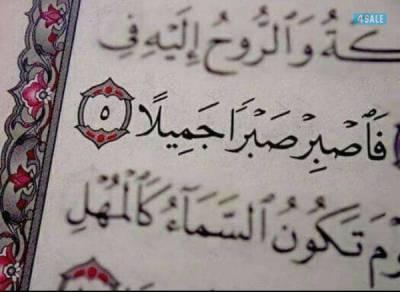 4SALE
كَةُ وَٱلرُّوحُ إِلَيْهِ فِى
فَٱصْبِرْ صَبْرًا جَمِيلًا ٥
وْمَ تَكُونُ ٱلسَّمَآءُ كَٱلْمُهْلِ